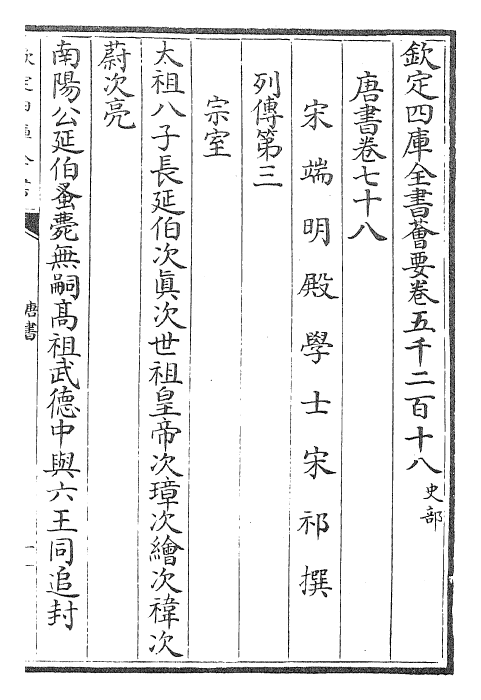 欽定四庫全書薈要卷五千二百十八 史部
唐書卷七十八
宋端明殿學士宋祁撰
列傳第三
宗室
太祖八子長延伯次真次世祖皇帝次璋次繪次禕次
蔚次亮
南陽公延伯蚤薨無嗣髙祖武德中與六王同追封
唐書